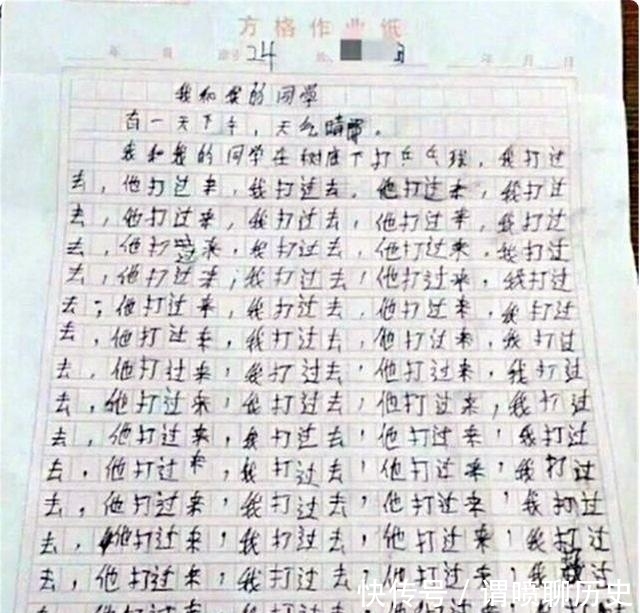 方格作业纸
年 月 24 班 年 月 日
我和我的同学
有一天下午，天气晴。
我和我的同学在树底下打乒乓球，我打过
去，他打过来，我打过去，他打过来，我打过
去，他打过来，我打过去，他打过来，我打过
去，他打过来，我打过去，他打过来，我打过
去，他打过来，我打过去，他打过来，我打过
去，他打过来，我打过去，他打过来，我打过
去，他打过来，我打过去，他打过来，我打过
去，他打过来，我打过去，他打过来，我打过
去，他打过来，我打过去，他打过来，我打过
去，他打过来，我打过去，他打过来，我打过
去，他打过来，我打过去，他打过来，我打过
去，他打过来，我打过去，他打过来，我打过
去，他打过来，我打过去，他打过来，我打过
去，他打过来，我打过去，他打过来，我打过
去，他打过来，我打过去，他打过来，我打过
快传号／谓喷聊历史